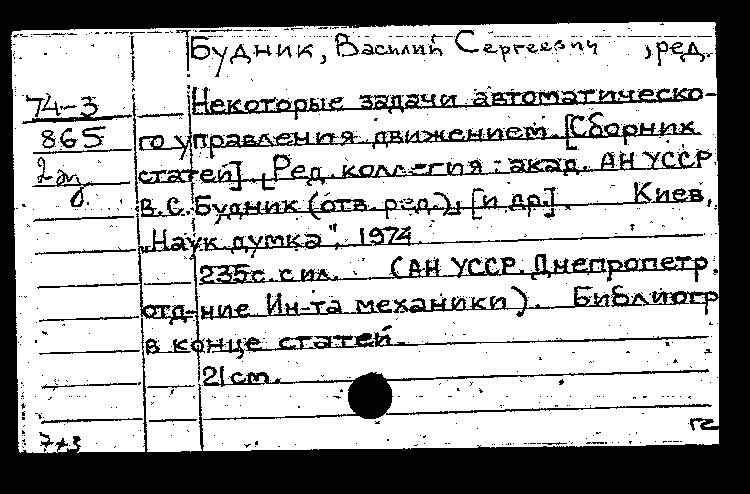 Будник, Василий Сергеевич, ред.
74-3
865
Некоторые задачи автоматическо-
го управления движением. [Сборник
статей]. [Ред. коллегия: акад. АН УССР
В. С. Будник (отв. ред.), [и др.]. Киев,
"Наук думка", 1974.
235с. с ил. (АН УССР. Днепропетр.
отд-ние Ин-та механики). Библиогр
в конце статей.
21 ст.